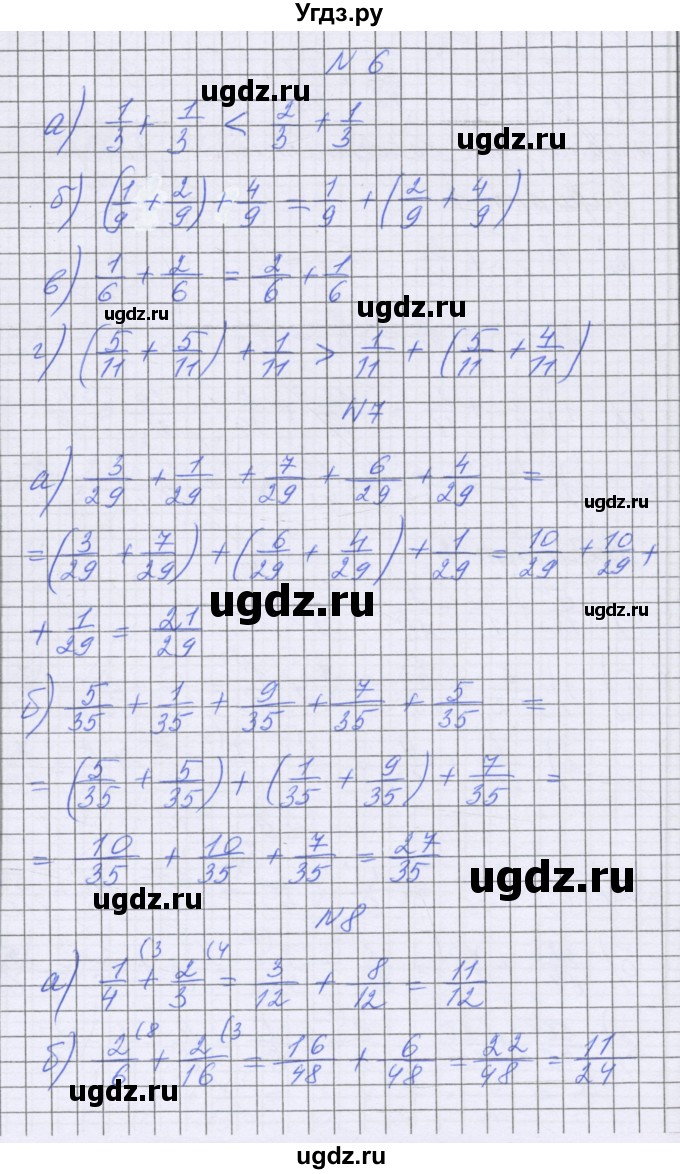 Угдз.ру
N 6
ugdz.ru
а) 1/3 + 1/3 < 2/3 + 1/3
ugdz.ru
б) (1/9 + 2/9) + 4/9 = 1/9 + (2/9 + 4/9)
в) 1/6 + 2/6 = 2/6 + 1/6
ugdz.ru
ugdz.ru
г) (5/11 + 5/11) + 1/11 > 1/11 + (5/11 + 4/11)
N7
а) 3/29 + 1/29 + 7/29 + 6/29 + 4/29 =
ugdz.ru
= (3/29 + 7/29) + (6/29 + 4/29) + 1/29 = 10/29 + 10/29 +
ugdz.ru
ugdz.ru
+ 1/29 = 21/29
б) 5/35 + 1/35 + 9/35 + 7/35 + 5/35 =
= (5/35 + 5/35) + (1/35 + 9/35) + 7/35 =
= 10/35 + 10/35 + 7/35 = 27/35
ugdz.ru
ugdz.ru
N8
а) 1/4 (3 + 2/3 (4 = 3/12 + 8/12 = 11/12
б) 2/6 (8 + 2/16 (3 = 16/48 + 6/48 = 22/48 = 11/24
ugdz.ru
ugdz.ru